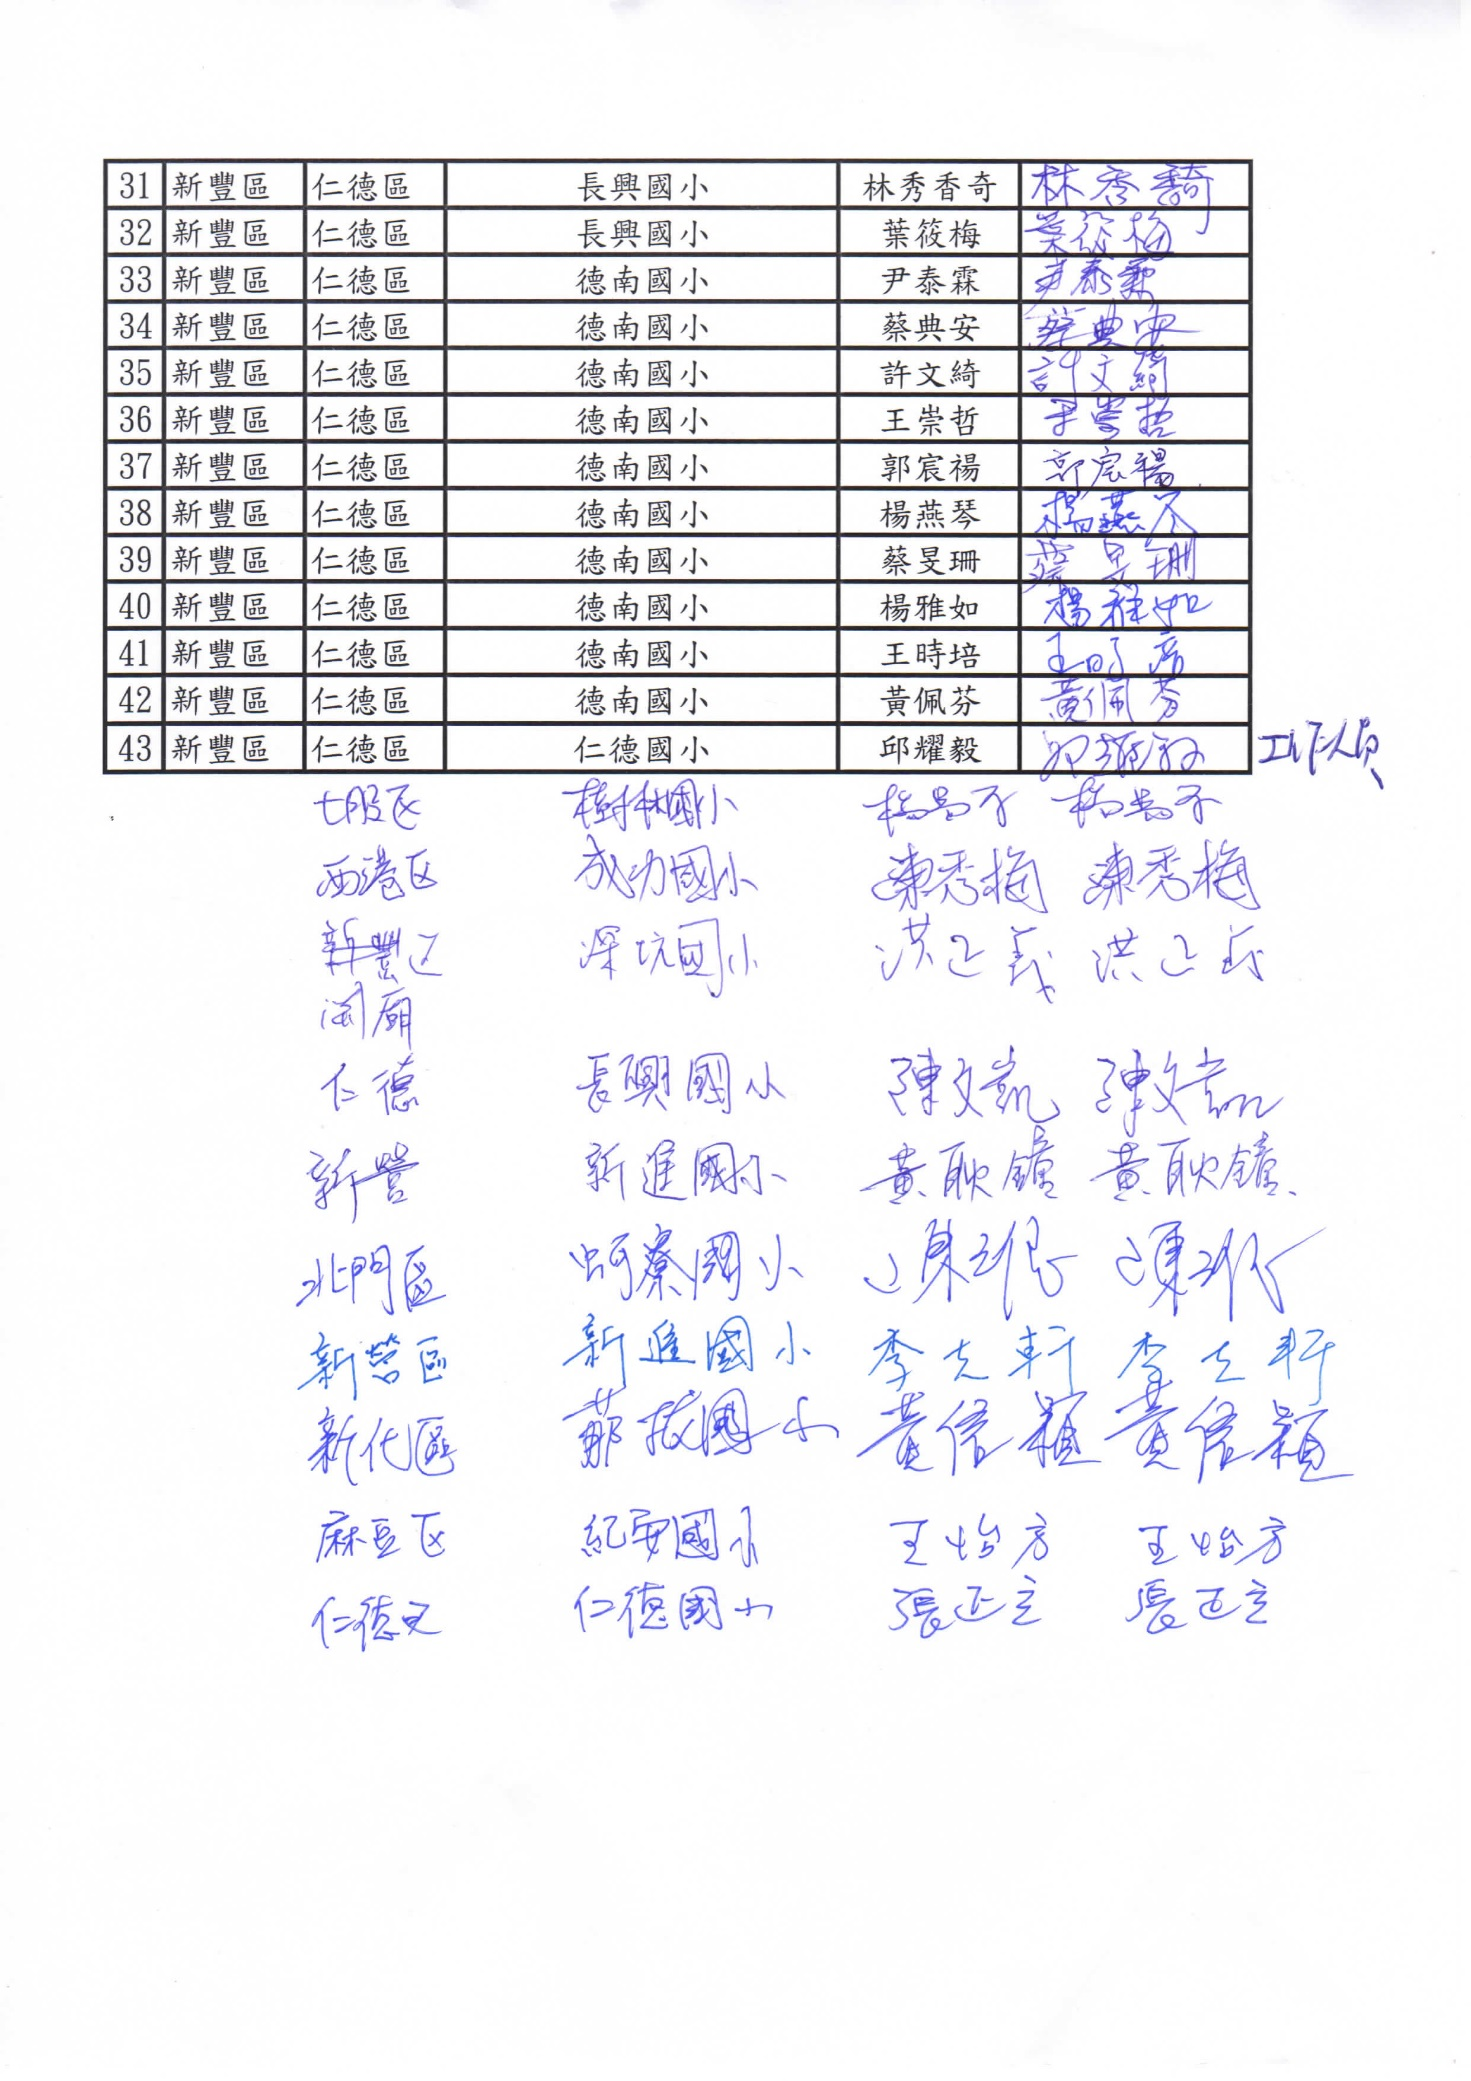 31 新豐區 仁德區 長興國小 林秀香奇 林秀香奇
32 新豐區 仁德區 長興國小 葉筱梅 葉筱梅
33 新豐區 仁德區 德南國小 尹泰霖 尹泰霖
34 新豐區 仁德區 德南國小 蔡典安 蔡典安
35 新豐區 仁德區 德南國小 許文綺 許文綺
36 新豐區 仁德區 德南國小 王崇哲 王崇哲
37 新豐區 仁德區 德南國小 郭宸禓 郭宸禓
38 新豐區 仁德區 德南國小 楊燕琴 楊燕琴
39 新豐區 仁德區 德南國小 蔡旻珊 蔡旻珊
40 新豐區 仁德區 德南國小 楊雅如 楊雅如
41 新豐區 仁德區 德南國小 王時培 王時培
42 新豐區 仁德區 德南國小 黃佩芬 黃佩芬
43 新豐區 仁德區 仁德國小 邱耀毅 邱耀毅 工作人員
七股区 樹林國小
西港区 成功國小 陳秀梅 陳秀梅
新豐区 深坑國小 洪正義 洪正義
関廟
仁德 長興國小 陳文凱 陳文凱
新營 新進國小 黃耿鐘 黃耿鐘
北門區 蚵寮國小
新營區 新進國小 李志軒 李志軒
新化區 那拔國小 黃信穎 黃信穎
麻豆区 紀安國小 王怡方 王怡方
仁德区 仁德國小 張正立 張正立